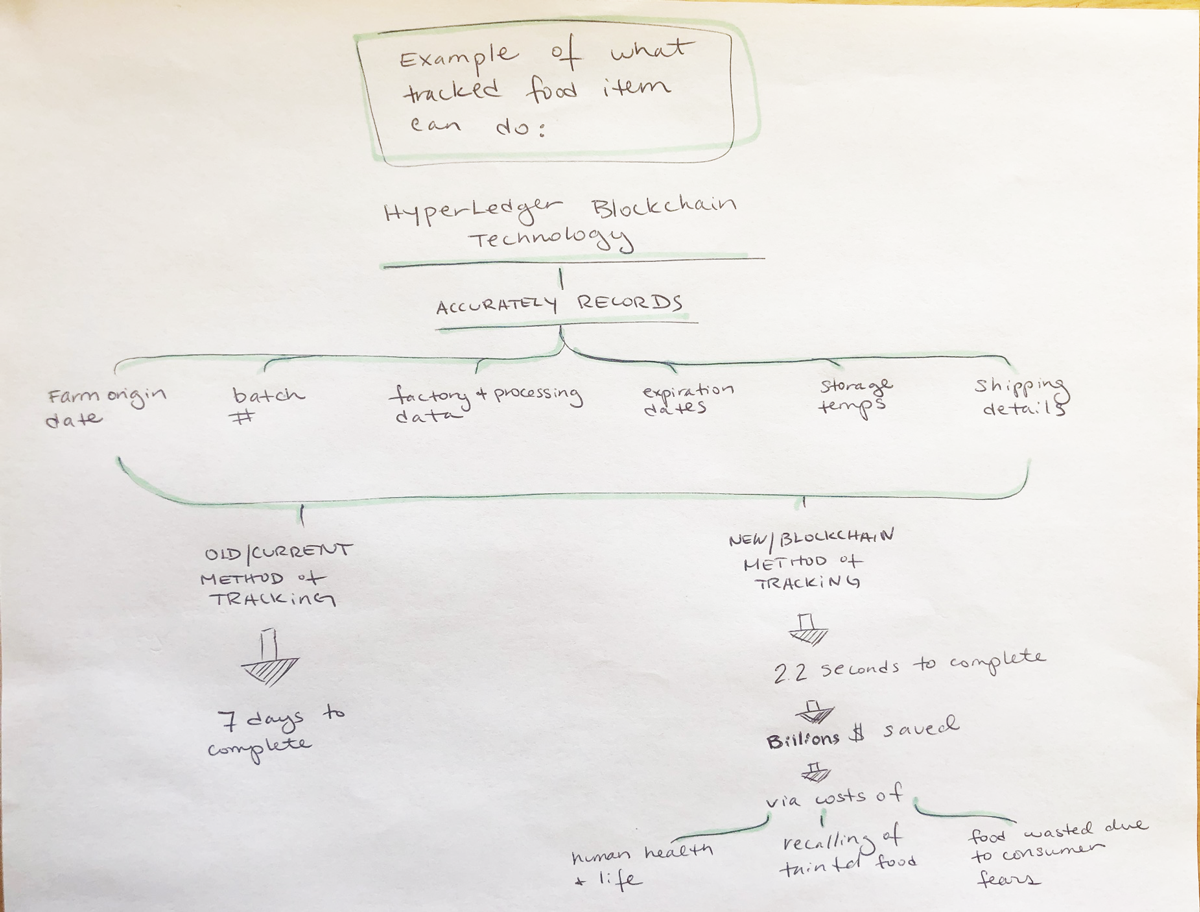 Example of what
tracked food item
can do:
HyperLedger Blockchain
Technology
ACCURATELY RECORDS
Farm origin
date
batch
#
factory + processing
data
expiration
dates
Storage
temps
Shipping
details
OLD/CURRENT
METHOD of
TRACKING
7 days to
complete
NEW/BLOCKCHAIN
METHOD of
TRACKING
2.2 seconds to complete
Billions $ saved
via costs of
human health
+ life
recalling of
tainted food
food wasted due
to consumer
fears